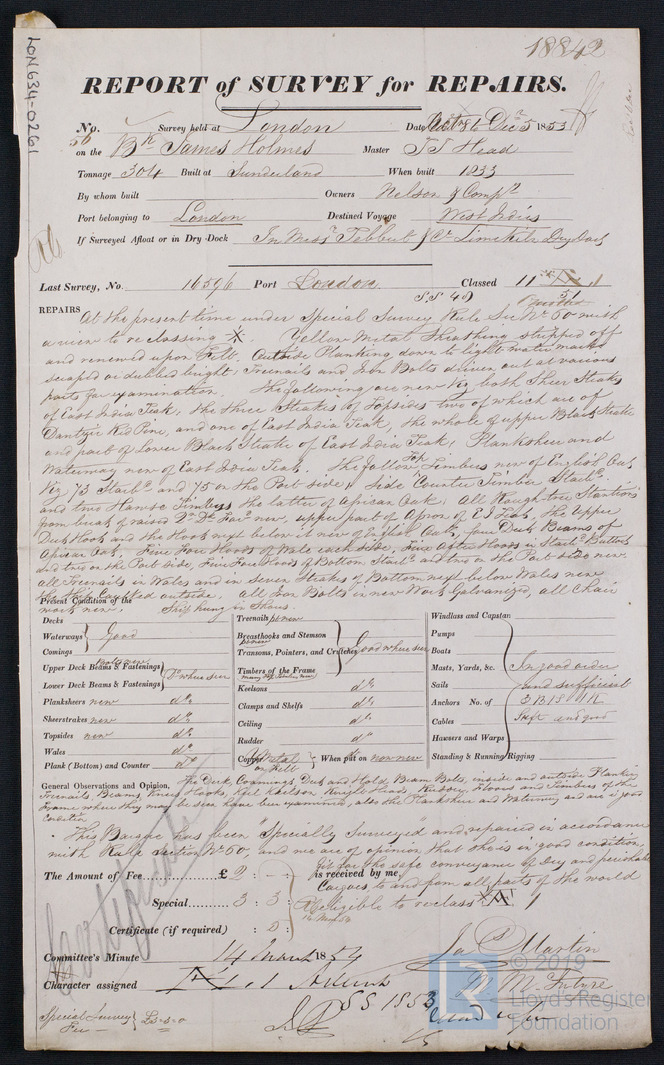 18842
LON634-0261
REPORT of SURVEY for REPAIRS.
No. 56 Survey held at London Date Dec 5 1853
on the Bk James Holmes Master Head
Tonnage 304 Built at Sunderland When built 1833
By whom built Owners Nelson & Compy
Port belonging to London Destined Voyage West Indies
If Surveyed Afloat or in Dry Dock In Messrs Tebbut & Co Limekiln Dry Dock
Last Survey, No. 16596 Port London. Classed 11
SS 49
REPAIRS At the present time under Special Survey Rule Sec No 60 with
a view to reclassing Yellow Metal Sheathing stripped off
and renewed upon Felt. Outside Planking down to light water marks
scraped or dubbed bright, Treenails and Iron Bolts driven out at various
parts for examination. The following are new Viz both Sheer Strakes
of East India Teak, the three Strakes of Topsides two of which are of
Dantzic Red Pine, and one of East India Teak, the whole of upper Black Strake
and part of Lower Black Strake of East India Teak, Planksheer and
Waterway new of East India Teak. The follow Top Timbers new of English Oak
Viz 73 Starbd and 75 on the Port side, Side Counter Timber Starbd
and two Hawse Timbers the latter of African Oak, All Rough tree Stantions
from break of raised Qr Dk Forwd new, upper part of Apron of E I Teak, the upper
Deck Hook and the Hook next below it new of English Oak, four Deck Beams of
African Oak, Five Fore Hoods of Wale each side, Five After Hoods in Starbd Buttock
and two on the Port side, Five Fore Hoods of Bottom Starbd and two on the Port side new
all Treenails in Wales and in Seven Strakes of Bottom next below Wales new
the Ship Caulked outside. all Iron Bolts in new Work Galvanized, all Chain
work new. Ship hung in Shores.
Present Condition of the
Decks
Waterways
Comings
Good
Upper Deck Beams & Fastenings
Lower Deck Beams & Fastenings
Do where seen
Planksheers new do
Sheerstrakes new do
Topsides new do
Wales do
Plank (Bottom) and Counter do
Treenails pt new
Breasthooks and Stemson pt new
Transoms, Pointers, and Crutches
Timbers of the Frame
many Top Timbers new
Good where seen
Keelsons do
Clamps and Shelfs do
Ceiling do
Rudder do
Copper Y Metal on Felt When put on now new
Windlass and Capstan
Pumps
Boats
Masts, Yards, &c.
Sails
Anchors No. of 3 B 1 S 1 K
Cables
Hawsers and Warps
Standing & Running Rigging
In good order
and sufficient
Suft and good
General Observations and Opinion, The Deck, Coamings, Deck and Hold Beam Bolts, inside and outside Planking
Treenails, Beams, Knees, Hooks, Keel Keelson Knight Heads, Rudder, Floors and Timbers of the
Frame where they may be seen have been examined, also the Planksheer and Waterway and are in good
Condition
This Barque has been "Specially Surveyed" and repaired in accordance
with Rule Section No 60, and we are of opinion that she is in good condition
fit for the safe conveyance of Dry and perishable
Cargoes, to and from all parts of the world
eligible to reclass A 1
The Amount of Fee £ 2 : - : is received by me,
Special 3 : 3 :
Certificate (if required) : 5 :
Committee's Minute 14 March 1854
Character assigned
SS 1853
Jas P Martin
Special Survey Fee £5-5-0
© 2019
Lloyd's Register
Foundation